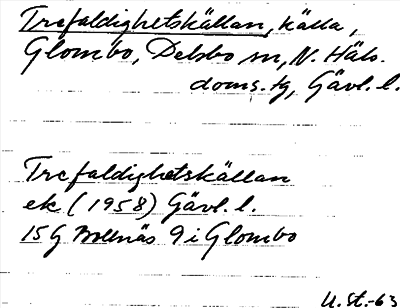 Trefaldighetskällan, källa,
Glombo, Delsbo sn, N. Häls.
doms. tg, Gävl. l.
Trefaldighetskällan
ek (1958) Gävl. l.
15G Bollnäs 9i Glombo
U.St.-63